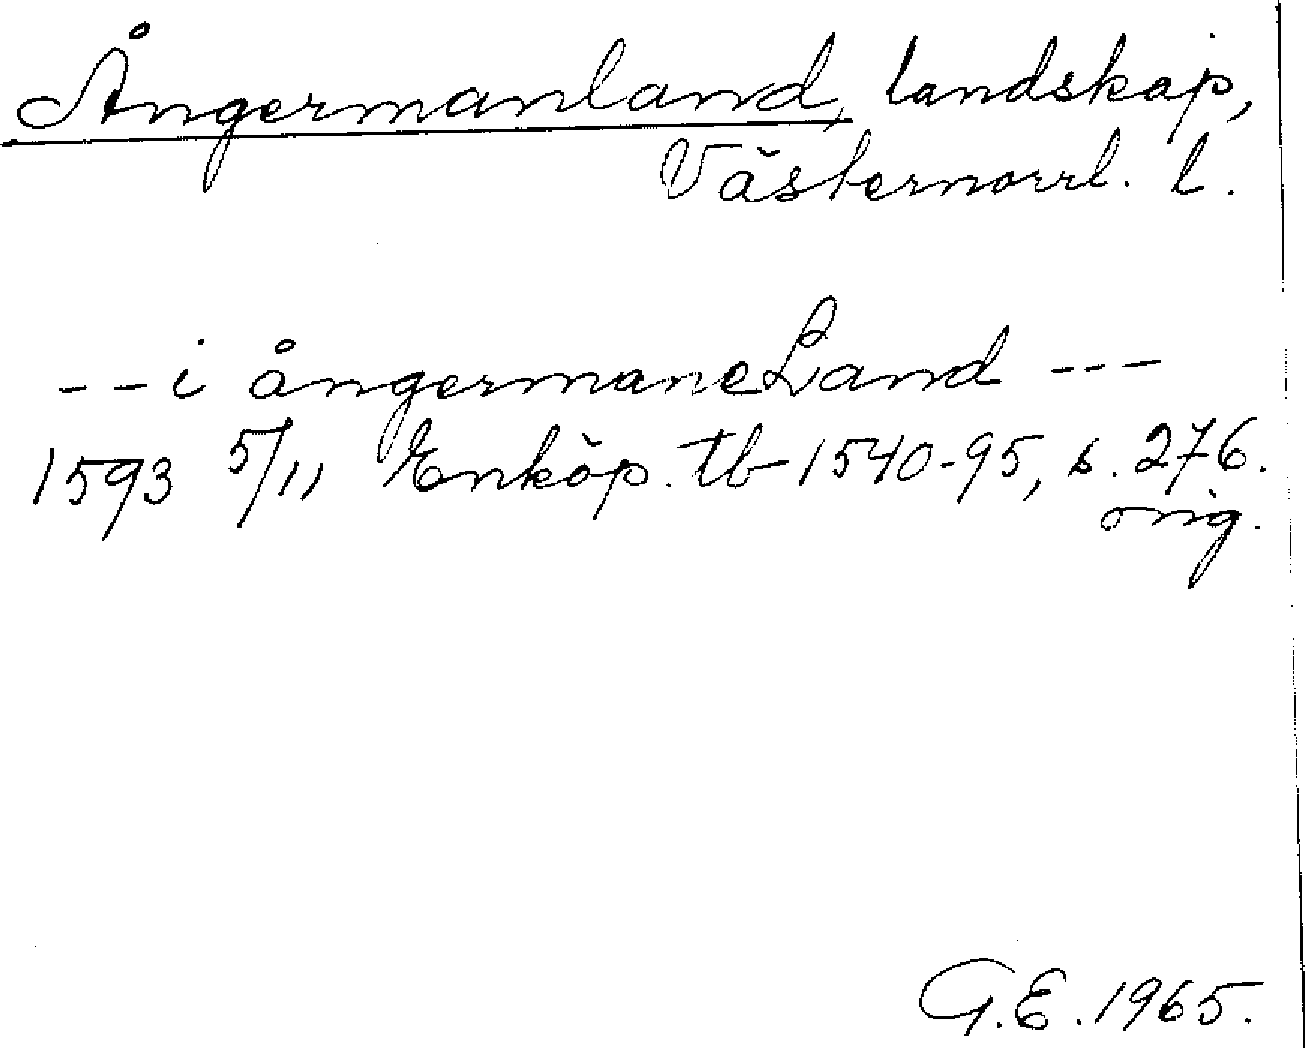 Ångermanland, landskap,
Västernorrl. l.
--i ångermaneLand ---
1593 5/11 Enköp. tb 1540-95, s. 276.
orig.
G.E. 1965.